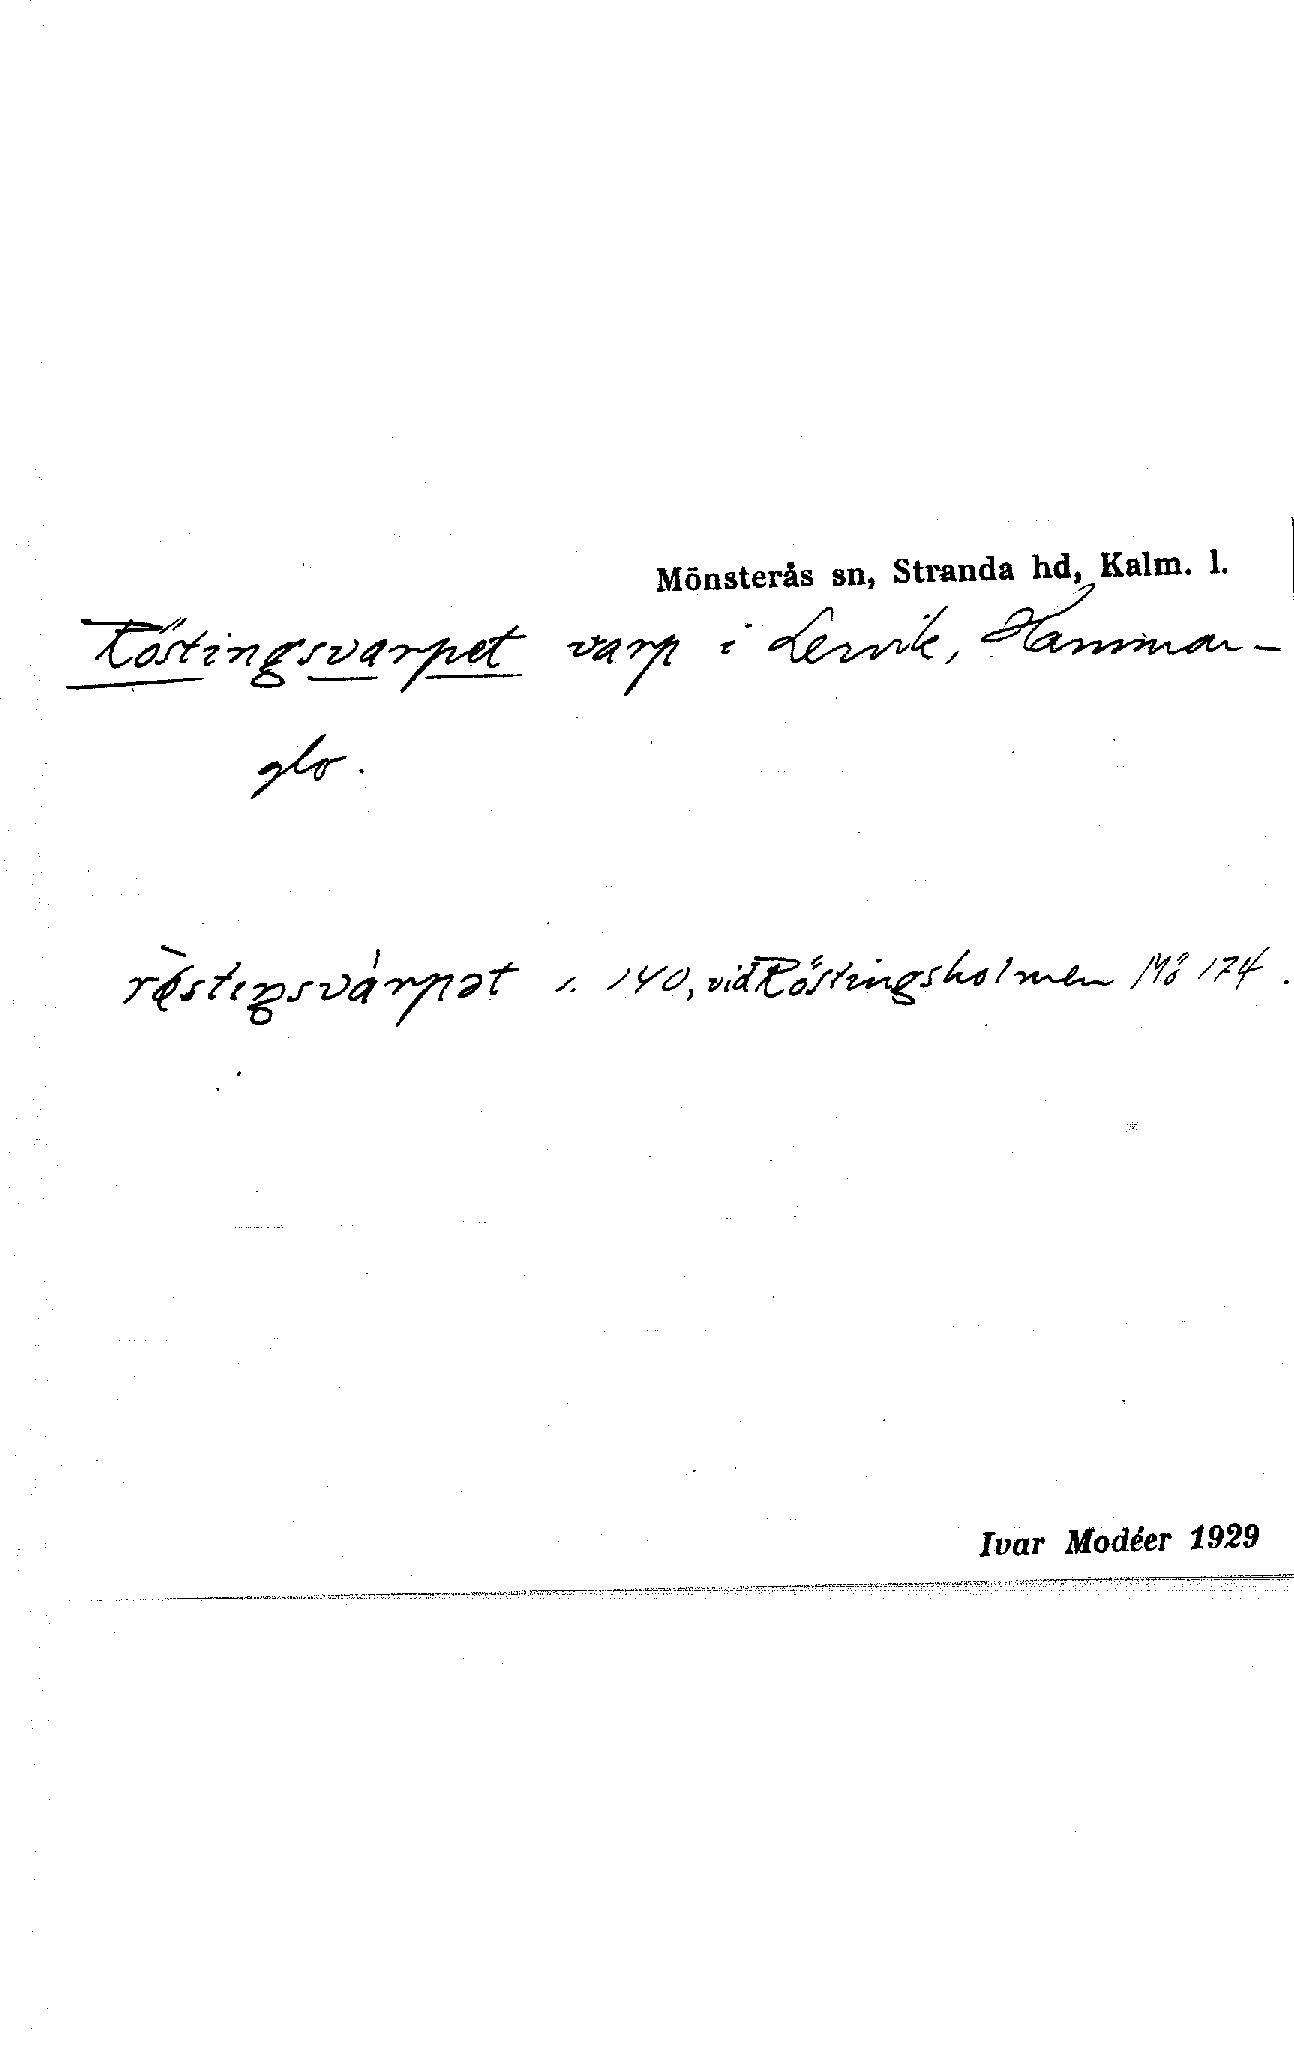 Mönsterås sn, Stranda hd, Kalm. l.
Röstingsvarpet varp i Lervik, Hammar-
glo.
rø̀stıŋsvárpət s. 140, vid Röstingsholmen Mö 174.
Ivar Modéer 1929